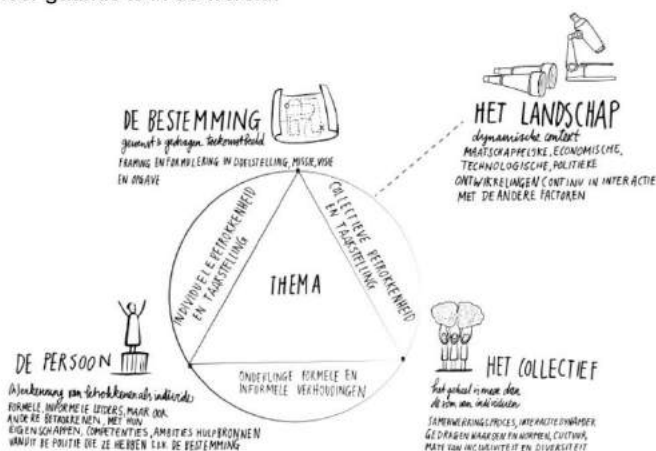 DE BESTEMMING
gewenst & gedragen toekomstbeeld
FRAMING EN FORMULERING IN DOELSTELLING, MISSIE, VISIE
EN OPGAVE
HET LANDSCHAP
dynamische context
MAATSCHAPPELIJKE, ECONOMISCHE,
TECHNOLOGISCHE, POLITIEKE
ONTWIKKELINGEN CONTINU IN INTERACTIE
MET DE ANDERE FACTOREN
INDIVIDUELE BETROKKENHEID
EN TAAKSTELLING
COLLECTIEVE BETROKKENHEID
EN TAAKSTELLING
THEMA
ONDERLINGE FORMELE EN
INFORMELE VERHOUDINGEN
DE PERSOON
(h)erkenning van betrokkenen als individu
FORMELE, INFORMELE LEIDERS, MAAR OOK
ANDERE BETROKKENEN, MET HUN
EIGENSCHAPPEN, COMPETENTIES, AMBITIES HULPBRONNEN
VANUIT DE POSITIE DIE ZE HEBBEN T.A.V. DE BESTEMMING
HET COLLECTIEF
het geheel is meer dan
de som van individuen
SAMENWERKINGSPROCES, INTERACTIEDYNAMIEK
GEDRAGEN WAARDEN EN NORMEN, CULTUUR,
MATE VAN INCLUSIVITEIT EN DIVERSITEIT